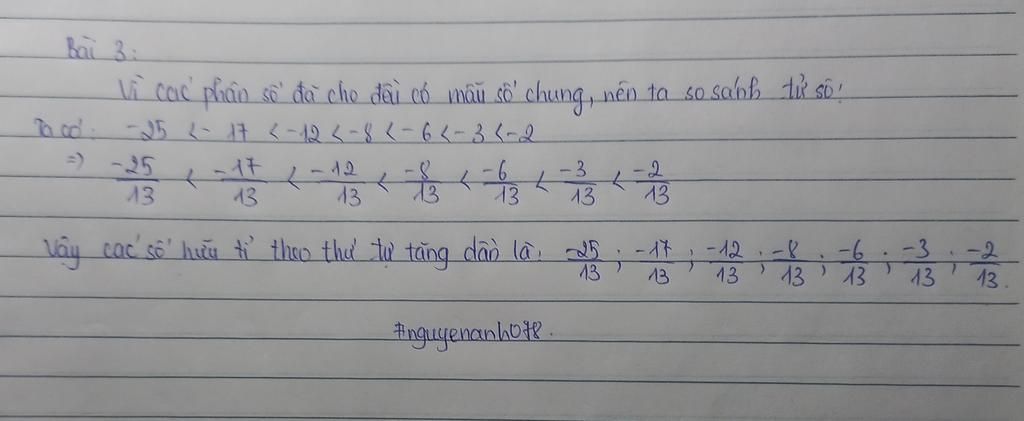 Bài 3:
Vì các phân số đã cho đều có mẫu số chung, nên ta so sánh tử số!
Ta có: -25 < -17 < -12 < -8 < -6 < -3 < -2
=> -25/13 < -17/13 < -12/13 < -8/13 < -6/13 < -3/13 < -2/13
Vậy các số hữu tỉ theo thứ tự tăng dần là: -25/13 ; -17/13 ; -12/13 ; -8/13 ; -6/13 ; -3/13 ; -2/13.
#nguyenanh078.